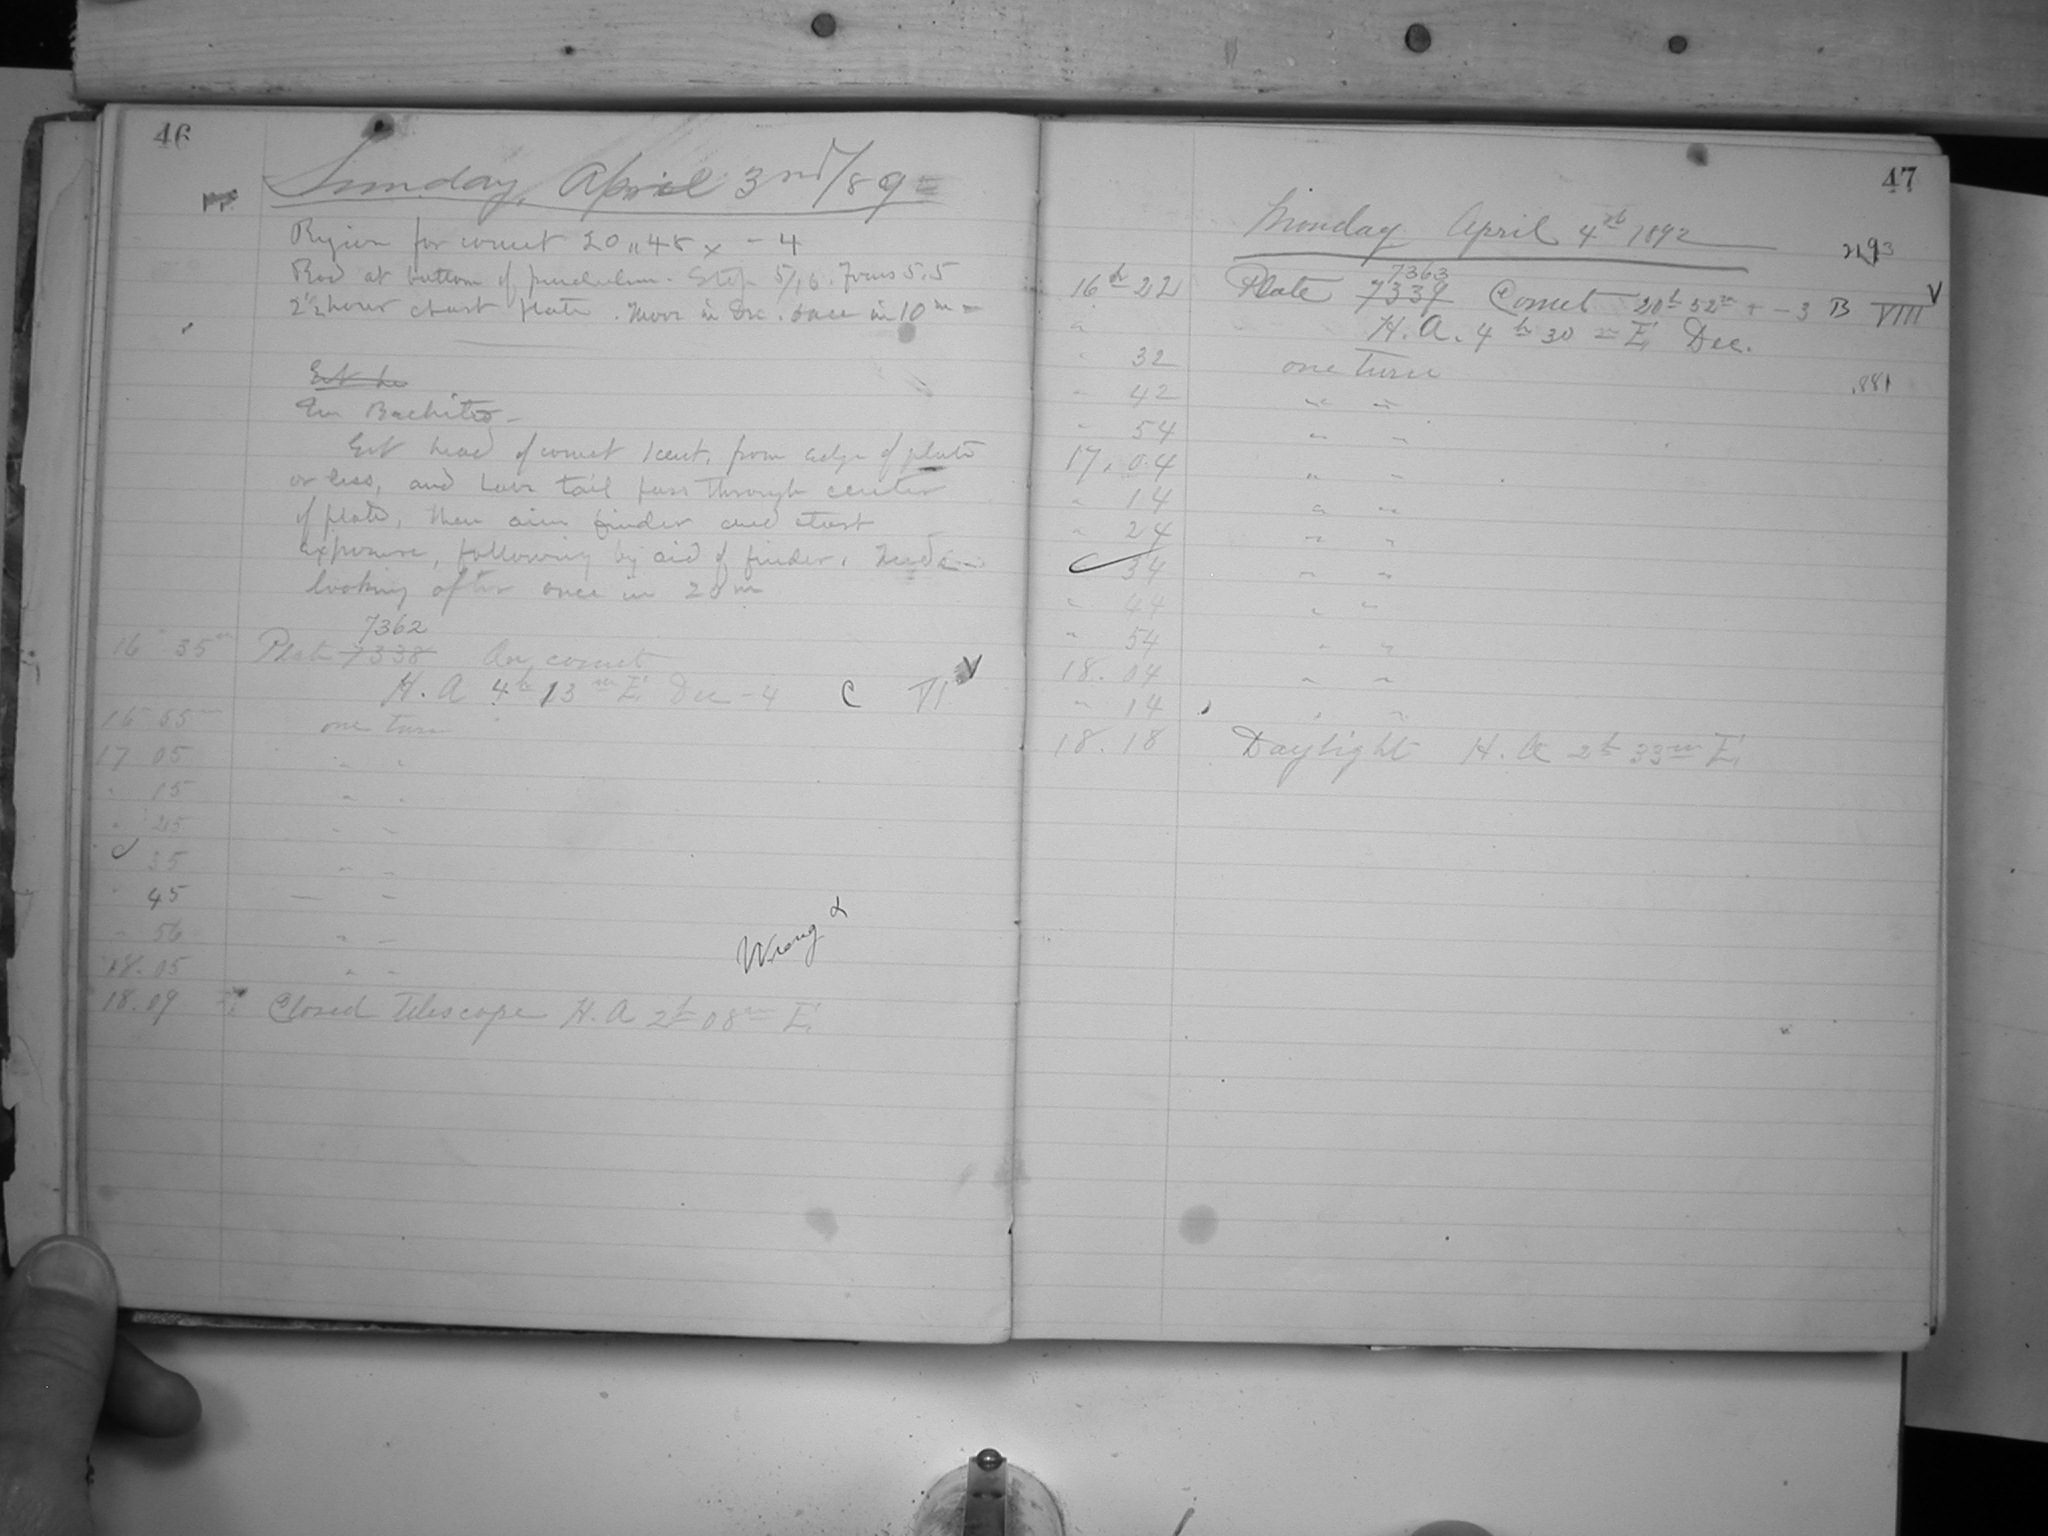 46
Sunday, April 3rd/89=
Region for comet 20,,48 x - 4
Rod at bottom of pendulum. Stop 5/16. Focus 5.5
2½ hour chart plate. Move in Dec. once in 10 m=
Get he
For Bachito-
Get head of comet 1 cent. from edge of plate
or less, and have tail pass through center
of plate, then aim finder and start
exposure, following by aid of finder. Needs
looking after once in 20 m
7362
16 35m Plate 7338 On comet
H. A 4h 13m E. Dec - 4 C VI V
16 55m one turn
17 05 " "
" 15 " "
" 25 " "
35 " "
" 45 — "
" 56 " "
Wrong α
18.05 " "
18.09 Closed Telescope H. A 2h 08m E.
47
Monday April 4th 1892
2193
7363
16h 22 Plate 7339 Comet 20h 52m + - 3 B VIII V
" H. A. 4h 30m E. Dec.
" 32 one turn
.881
" 42 " "
" 54 " "
17. 04 " "
" 14 " "
" 24 " "
34 " "
" 44 " "
" 54 " "
18. 04 " "
" 14 " "
18. 18 Daylight H. A 2h 33m E.